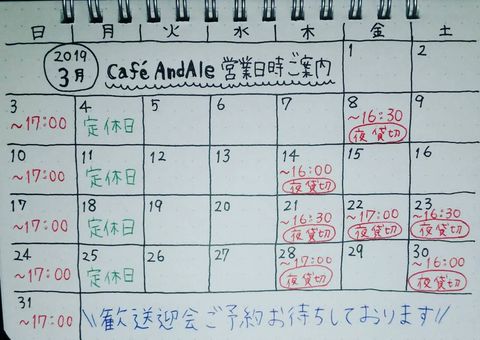 日 月 火 水 木 金 土
2019
3月
Café AndAle 営業日時ご案内
1 2
3 4 5 6 7 8 9
~17:00 定休日 ~16:30
夜貸切
10 11 12 13 14 15 16
~17:00 定休日 ~16:00
夜貸切
17 18 19 20 21 22 23
~17:00 定休日 ~16:30 ~17:00 ~16:30
夜貸切 夜貸切 夜貸切
24 25 26 27 28 29 30
~17:00 定休日 ~17:00 ~16:00
夜貸切 夜貸切
31
~17:00 \\歓送迎会ご予約お待ちしております//